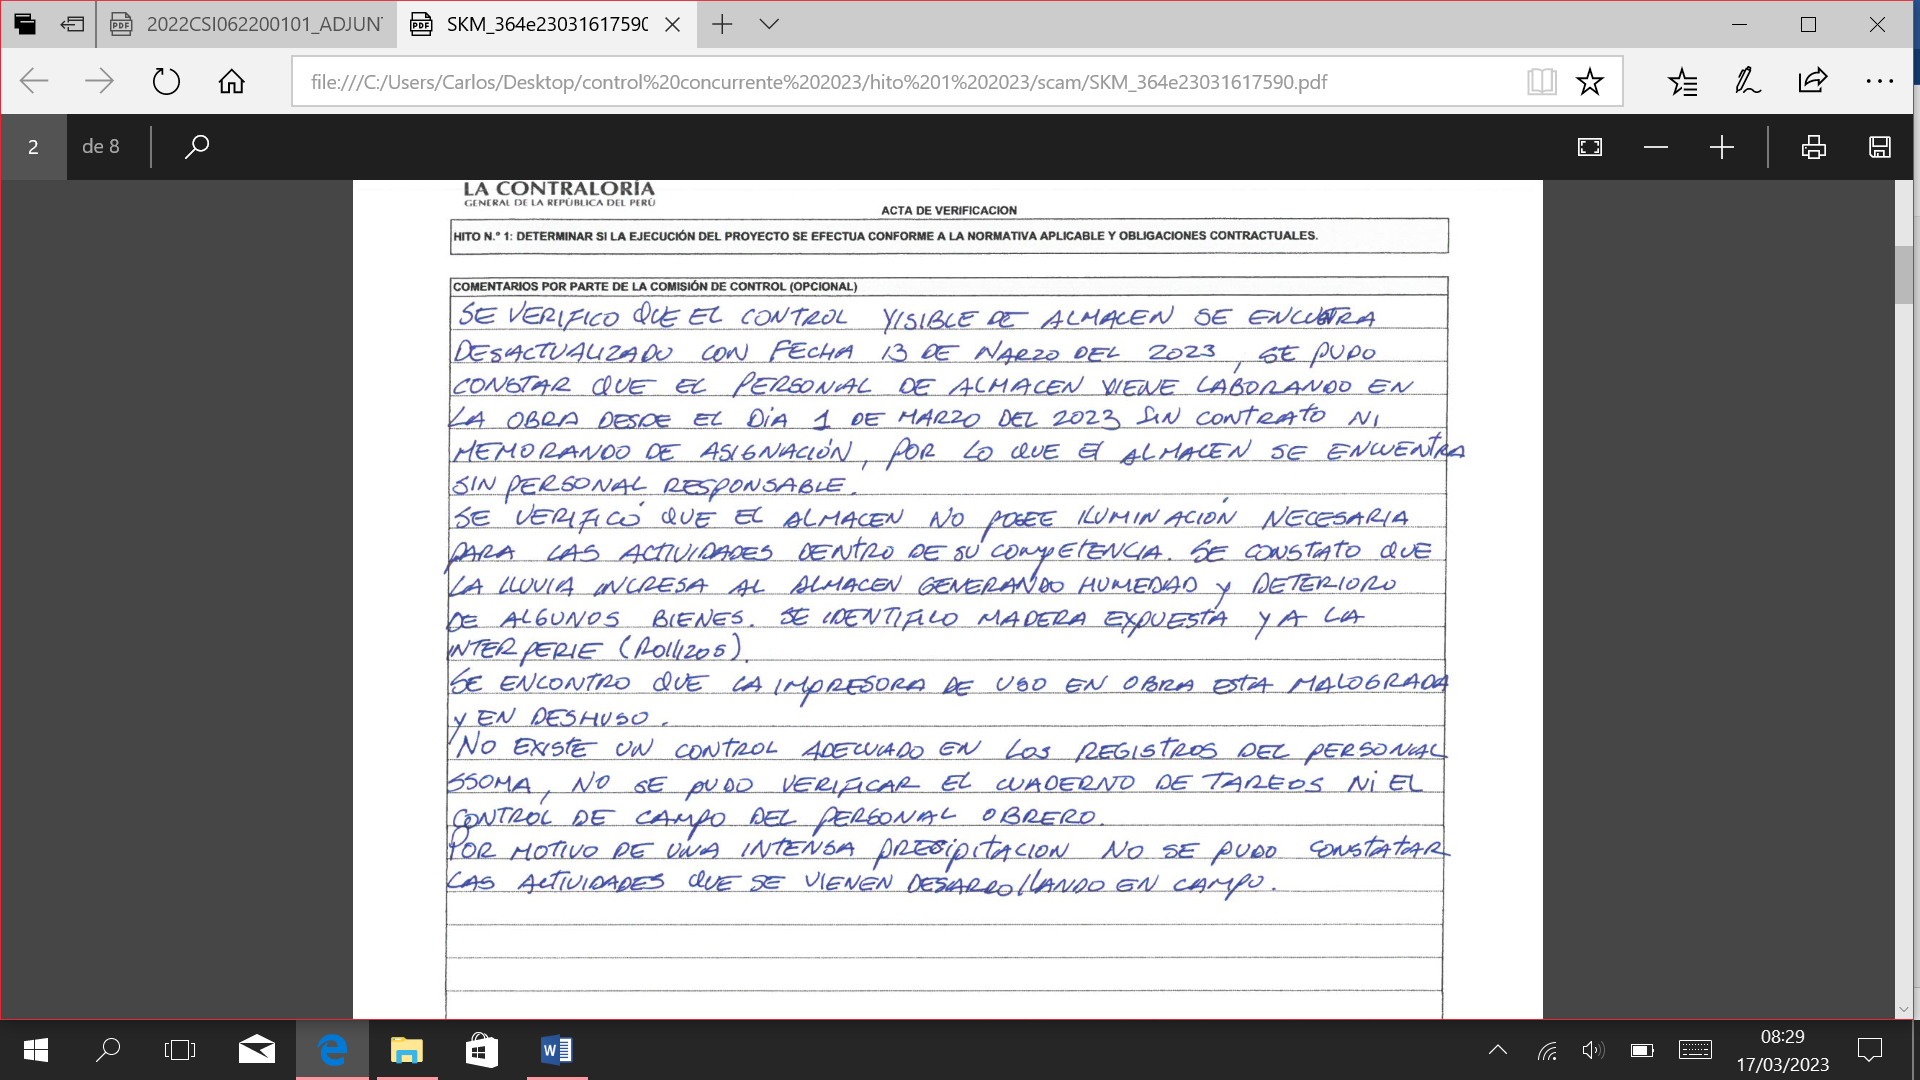 2022CSI062200101_ADJUN
SKM_364e2303161759
file:///C:/Users/Carlos/Desktop/control%20concurrente%202023/hito%201%202023/scam/SKM_364e23031617590.pdf
2 de 8
LA CONTRALORÍA
GENERAL DE LA REPÚBLICA DEL PERÚ
ACTA DE VERIFICACION
HITO N.° 1: DETERMINAR SI LA EJECUCIÓN DEL PROYECTO SE EFECTUA CONFORME A LA NORMATIVA APLICABLE Y OBLIGACIONES CONTRACTUALES.
COMENTARIOS POR PARTE DE LA COMISIÓN DE CONTROL (OPCIONAL)
SE VERIFICO QUE EL CONTROL VISIBLE DE ALMACEN SE
DESACTUALIZADO CON FECHA 13 DE MARZO DEL 2023, SE PUDO
CONSTAR QUE EL PERSONAL DE ALMACEN VIENE LABORANDO EN
LA OBRA DESDE EL DÍA 1 DE MARZO DEL 2023 SIN CONTRATO NI
MEMORANDO DE ASIGNACIÓN, POR LO QUE El ALMACEN SE ENCUENTRA
SIN PERSONAL RESPONSABLE.
SE VERIFICÓ QUE EL ALMACEN NO POSEE ILUMINACIÓN NECESARIA
PARA LAS ACTIVIDADES DENTRO DE SU COMPETENCIA. SE CONSTATO QUE
LA LLUVIA INGRESA AL ALMACEN GENERANDO HUMEDAD Y DETERIORO
DE ALGUNOS BIENES. SE IDENTIFICO MADERA EXPUESTA Y A LA
INTERPERIE (Rollizos).
SE ENCONTRO QUE LA IMPRESORA DE USO EN OBRA ESTA MALOGRADA
Y EN DESHUSO.
NO EXISTE UN CONTROL ADECUADO EN LOS REGISTROS DEL PERSONAL
SSOMA, NO SE PUDO VERIFICAR EL CUADERNO DE TAREOS NI EL
CONTROL DE CAMPO DEL PERSONAL OBRERO.
POR MOTIVO DE UNA INTENSA PRECIPITACION NO SE PUDO CONSTATAR
LAS ACTIVIDADES QUE SE VIENEN DESARROLLANDO EN CAMPO.
08:29
17/03/2023